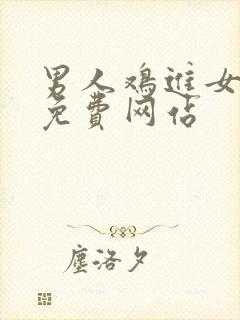 男人鸡进女
免费网站
尘洛夕